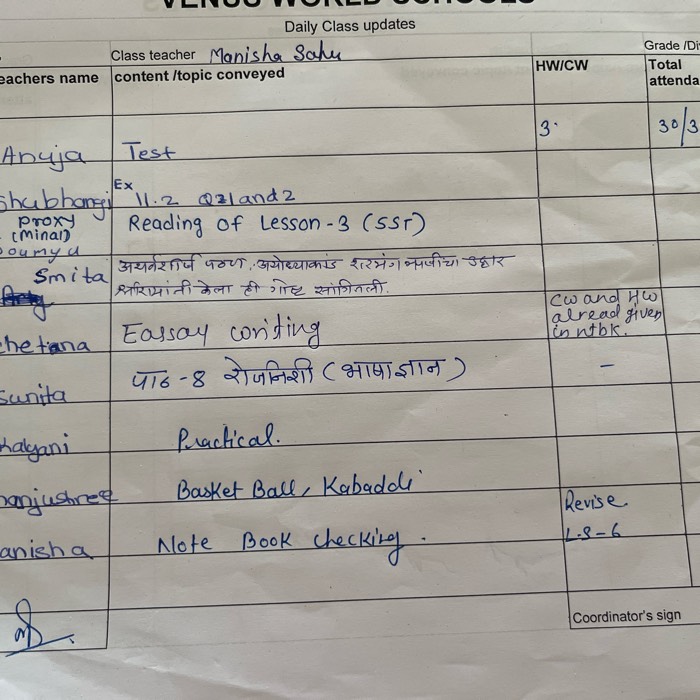 VENUS WORLD SCHOOLS
Daily Class updates
Class teacher Manisha Sahu
Grade /Di
eachers name content /topic conveyed HW/CW Total
attenda
3. 30/3
Anuja Test
Shubhangi Ex 11.2 Q31and2
proxy (Minal) Reading of Lesson-3 (SST)
oumya
Smita अथर्वशीर्ष पठण, अयोध्याकांड शरभंग ऋषींचा उद्धार
श्रीरामांनी केला ही गोष्ट सांगितली.
chetana Eassay writing CW and HW
alread given
in ntbk.
Sunita पाठ -8 रोजनिशी (भाषाज्ञान) -
kalyani Practical.
manjushree Basket Ball, Kabaddi
anisha Note Book checking. Revise
L.S-6
Coordinator's sign